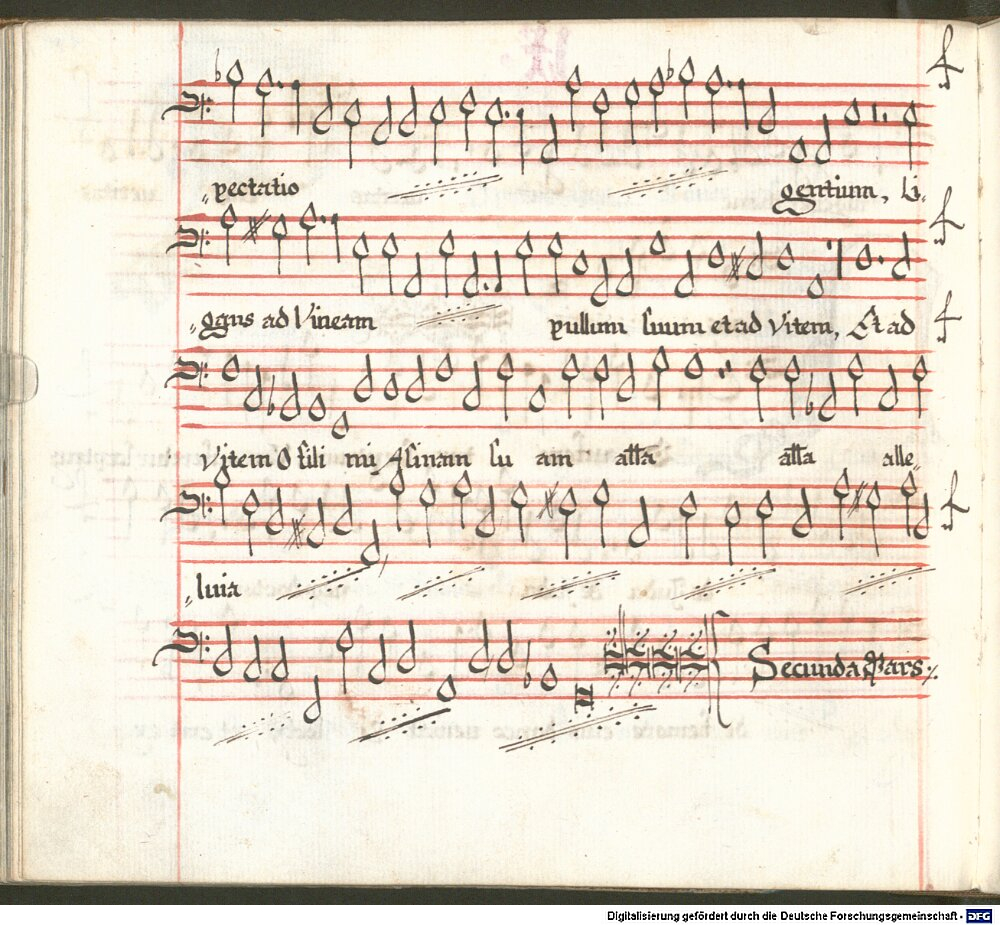 „pectatio gentium, Li„
„gans ad Vineam pullum suum et ad Vitem, Et ad
Vitem O fili mi Asinam su am alla alla alle„
„luia
Secunda Pars
Digitalisierung gefördert durch die Deutsche Forschungsgemeinschaft - DFG